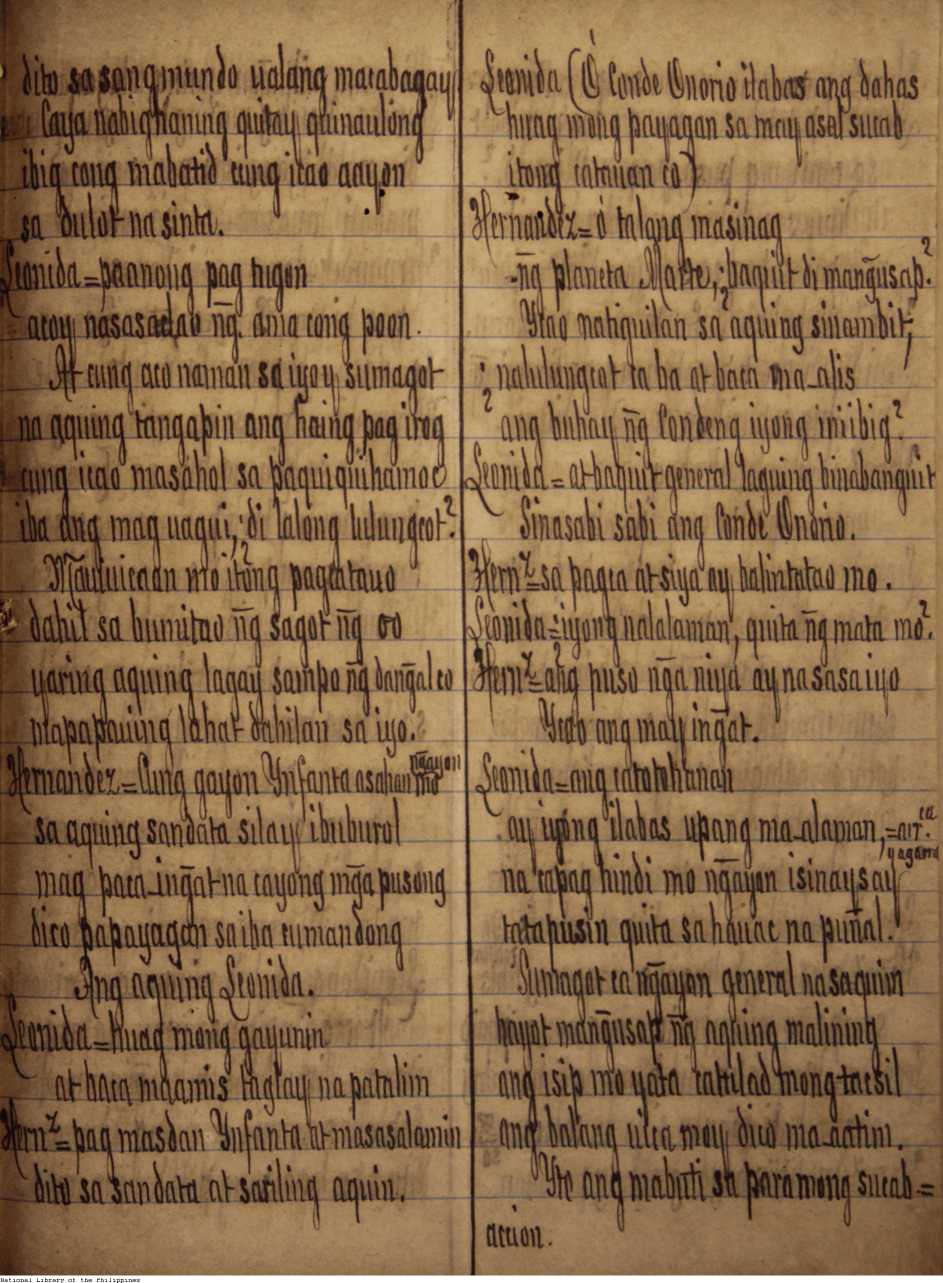 dito sa sang mundo ualang macabagay
Caya nabighaning quitay quinaulong
ibig cong mabatid cung icao aayon
sa dulot na sinta.
Leonida = paanong pag tugon
acoy nasasaclao n̄g ama cong poon.
At cung aco naman sa iyoy sumagot
na aquing tangapin ang haing pag irog
cung icao masahol sa paquiquihamoc
iba ang mag uagui, ¿di lalong lulungcot?
Mauiuicaan mo itong pagcatauo
dahil sa bumitao n̄g sagot n̄g oo
yaring aquing lagay sampo n̄g dan̄gal co
mapapauing lahat dahilan sa iyo.
Hernandez = Cung gayon Ynfanta asahan mo n̄gayon
sa aquing sandata silay ibuburol
mag paca_in̄gat na cayong mn̄ga pusong
dico papayagan sa iba cumandong
Ang aquing Leonida.
Leonida = huag mong gayunin
at baca maamis taglay na patalim
Hernz = pag masdan Ynfanta at masasalamin
dito sa sandata at sariling aquin.
Leonida (Ó Conde Onorio ilabas ang dahas
huag mong payagan sa may asal sucab
itong catauan co)
Hernandez = ó talang masinag
n̄g planeta Marte, ¿baquit di man̄gusap?
Ycao natiguilan sa aquing sinambit,
¿nahulungcot ca ba at baca ma_alis
ang buhay n̄g Condeng iyong iniibig?
Leonida = at baquit general laguing binabanguit
Sinasabi sabi ang Conde Onorio.
Hernz = sa pagca at siya ay, balintatao mo.
Leonida = ¿iyong nalalaman, quita n̄g mata mo?
Hernz = ang puso n̄ga niya ay nasasaiyo
Ycao ang may in̄gat.
Leonida = ang catotohanan
ay iyong ilabas upang ma_alaman,
na capag hindi mo n̄gayon isinaysay
tatapusin quita sa hauac na puñal.
Sumagot ca n̄gayon general na saquim
hayot man̄gusap n̄g aquing malining
ang isip mo yata cahilad mong tacsil
ang balang uica moy dico ma_aatim.
Yto ang mabuti sa paramong sucab =
accion.
National Library of the Philippines